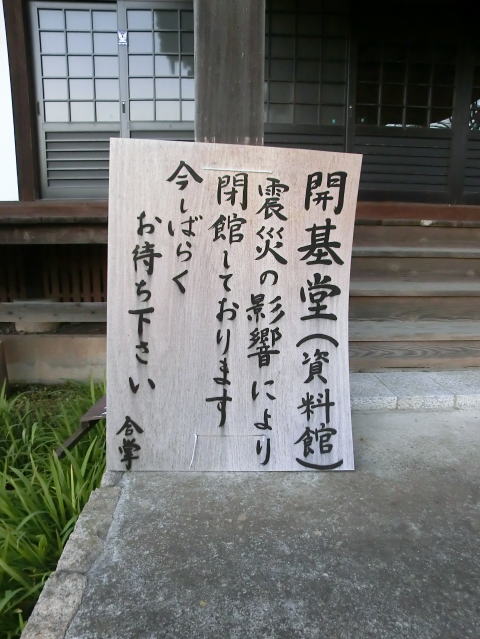 開基堂(資料館)
震災の影響により
閉館しております
今しばらく
お待ち下さい
合掌